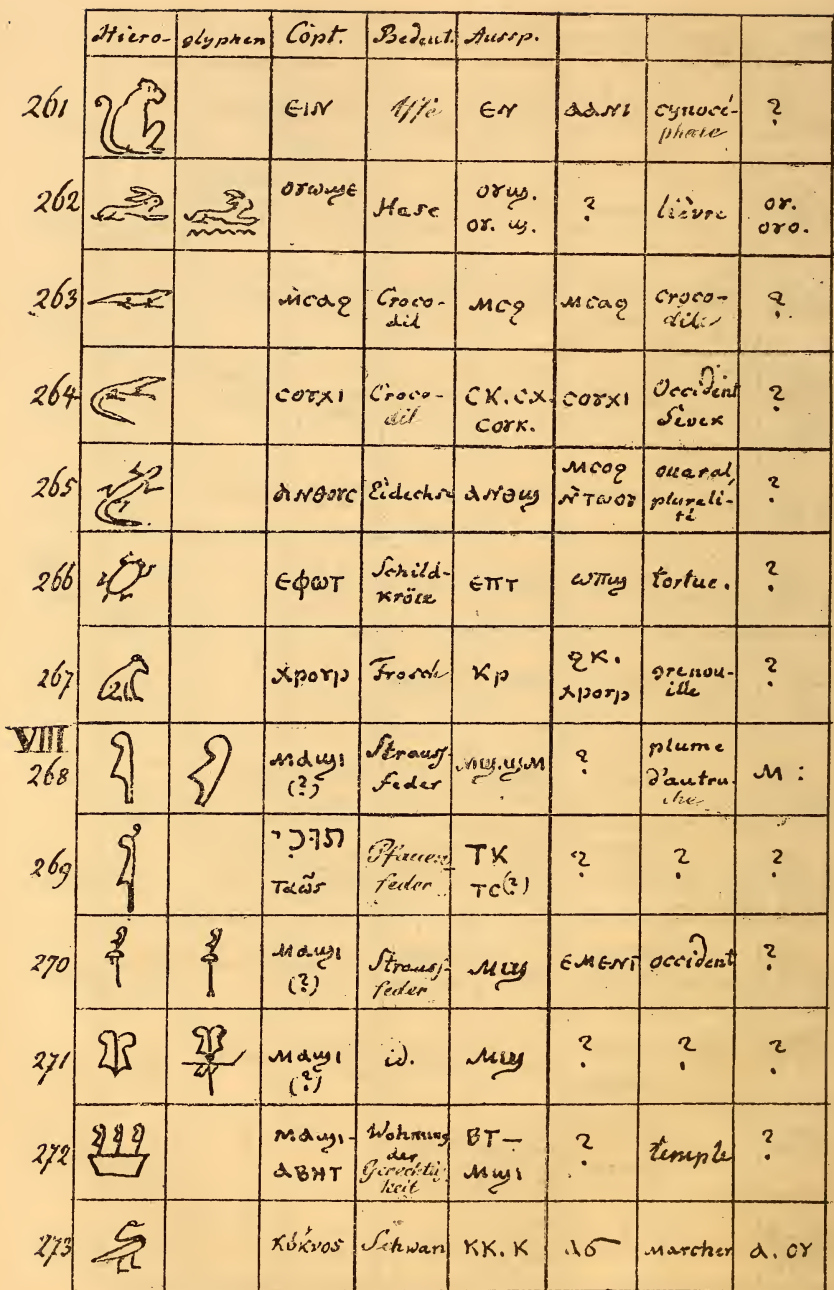 Hiero- glyphen Copt. Bedeut. Aussp.
261 ⲉⲓⲛ Affe ⲉⲛ ⲁⲁⲛⲓ cynocé-
phale ?
262 ⲟⲩⲱϣⲉ Hase ⲟⲩϣ.
ⲟⲩ. ϣ. ? lièvre ⲟⲩ.
ⲟⲩⲟ.
263 ⲙⲥⲁϩ Croco-
dil ⲙⲥϩ ⲙⲥⲁϩ croco-
dile ?
264 ⲥⲟⲩⲭⲓ Croco-
dil ⲥⲕ. ⲥⲭ.
ⲥⲟⲩⲕ. ⲥⲟⲩⲭⲓ Occident
Sevek ?
265 ⲁⲛⲑⲟⲩⲥ Eidechse ⲁⲛⲑϣ ⲙⲥⲟϩ
ⲛ̀ⲧⲱⲟⲩ ouaral,
plurali-
té ?
266 ⲉⲫⲱⲧ Schild-
kröte ⲉⲡⲧ ⲱⲡϣ tortue. ?
267 ⲭⲣⲟⲩⲣ Frosch ⲕⲣ ϩⲕ.
ⲭⲣⲟⲩⲣ grenou-
ille ?
VIII
268 ⲙⲁϣⲓ
(?) Strauss-
feder ⲙϣ. ϣⲙ ? plume
d'autru-
che ⲙ :
269 תוכי
ταῶς Pfauen-
feder ⲧⲕ
ⲧⲥ(?) ? ? ?
270 ⲙⲁϣⲓ
(?) Strauss-
feder ⲙϣ ⲉⲙⲉⲛⲧ occident ?
271 ⲙⲁϣⲓ
(?) id. ⲙϣ ? ? ?
272 ⲙⲁϣⲓ-
ⲁⲃⲏⲧ Wohnung
der
Gerechtig-
keit ⲃⲧ—
ⲙϣⲓ ? temple ?
273 κύκνος Schwan ⲕⲕ. ⲕ marcher ⲁ. ⲟⲩ